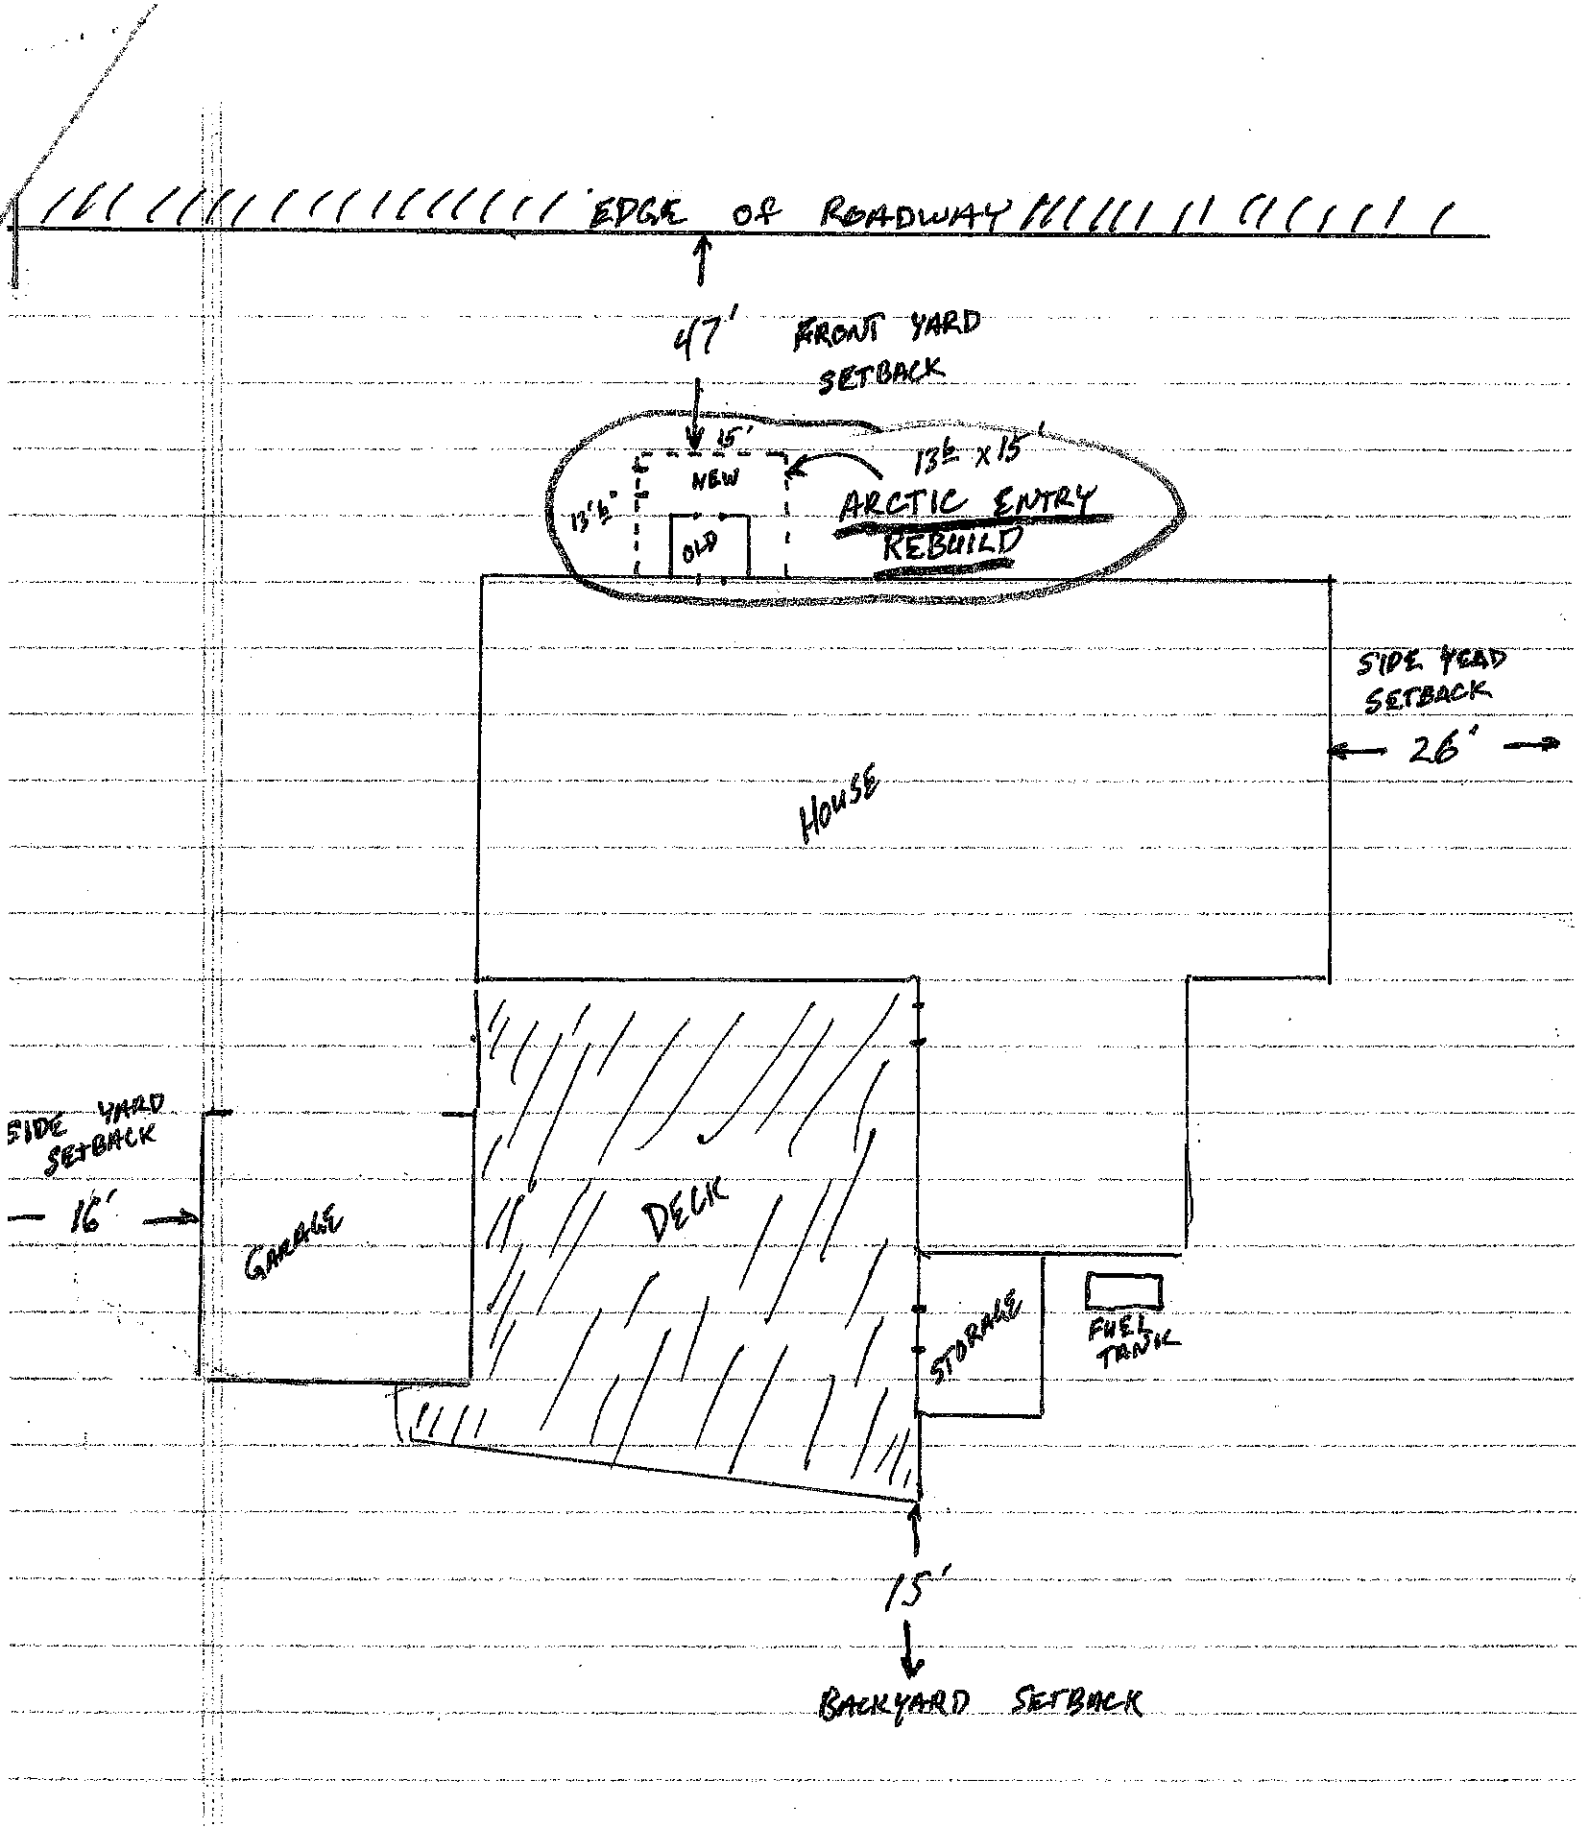 EDGE OF ROADWAY
47'
FRONT YARD
SETBACK
15'
NEW
13'6"
OLD
136 x 15'
ARCTIC ENTRY
REBUILD
SIDE YEAD
SETBACK
26'
HOUSE
SIDE YARD
SETBACK
16'
GARAGE
DECK
STORAGE
FUEL
TANK
15'
BACKYARD SETBACK